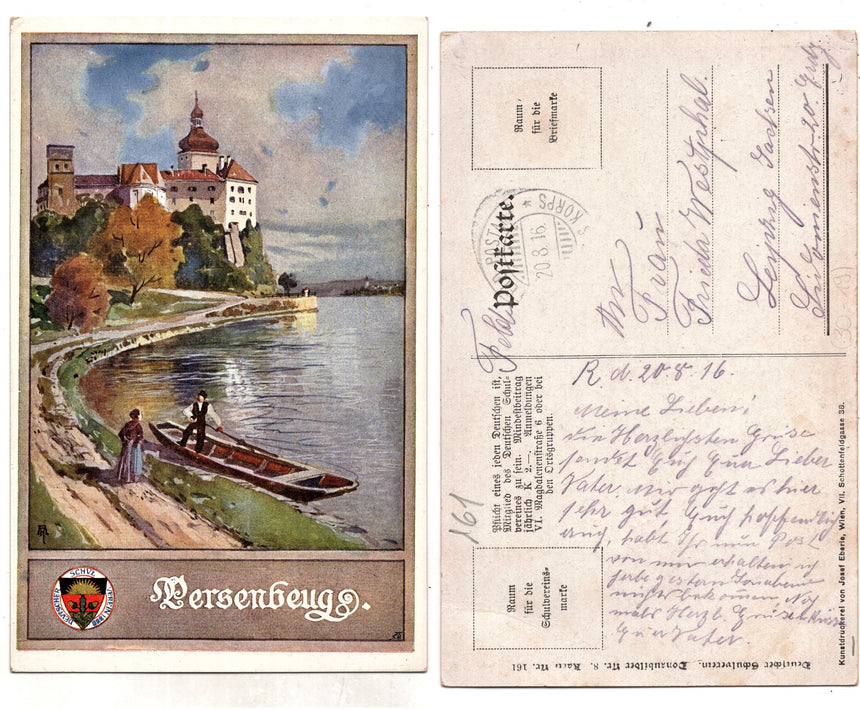 Persenbeug.
DEUTSCHER SCHULVEREIN 1880
Raum
für die
Briefmarke
Postkarte.
Feld
POST
KORPS
20.8.16.
An
Frau
Friedr Westphal.
Leipzig Sachsen
Pflicht eines jeden Deutschen ist,
Mitglied des Deutschen Schul-
vereines zu sein. Mindestbeitrag
jährlich K 2.—. Anmeldungen
VI. Magdalenenstraße 6 oder bei
den Ortsgruppen.
161
Raum
für die
Schulvereins-
marke
R. d. 20.8.16.
Meine Lieben!
die Herzlichsten Grüse
sendet Euch Euer Lieber
Vater, mir geht es hier
sehr gut Euch hoffendlich
auch, habt Ihr nun Post
von mir erhalten, ich
habe gestern Sonabend
nichts bekommen. Noch
mals Herzl. Grüse & Küsse
Euer Vater.
Deutscher Schulverein. Donaubilder Nr. 8. Karte Nr. 161
Kunstdruckerei von Josef Eberle, Wien, VII. Schottenfeldgasse 38.